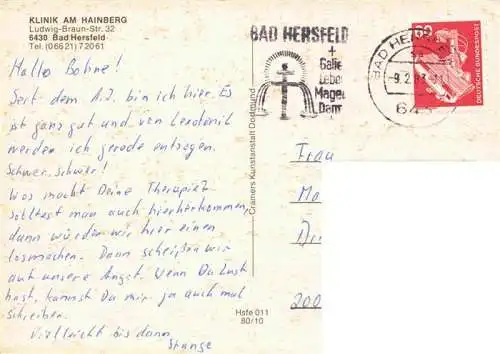 KLINIK AM HAINBERG
Ludwig-Braun-Str. 32
6430 Bad Hersfeld
Tel. (06621) 72061
Hallo Bohne!
Seit dem 1.2. bin ich hier. Es
ist ganz gut und von Lexotanil
werden ich gerade entzogen.
Schwer, schwer!
Was macht Deine Therapie?
Solltest man auch hierherkommen,
dann würden wir hier einen
losmachen. Dann scheißen wir
auf unsere Angst. Wenn Du Lust
hast, kannst Du mir ja auch mal
schreiben.
Vielleicht bis dann
Stange
Cramers Kunstanstalt Dortmund
Hsfe 011
80/10
BAD HERSFELD
+
Galle
Leber
Magen
Darm
BAD HERSFELD
9.2.83
643
60
DEUTSCHE BUNDESPOST
Frau
Ma
200